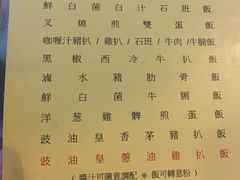 鮮白菌白汁石班飯
叉燒煎雙蛋飯
咖喱汁豬扒/雞扒/石班/牛肉/牛腩飯
黑椒西冷牛扒飯
滷水豬肋骨飯
鮮白菌牛脷飯
洋葱雞髀煎蛋飯
豉油皇香茅豬扒飯
豉油皇蔥油雞扒飯
(醬汁可隨意調配 ※ 飯可轉意粉)